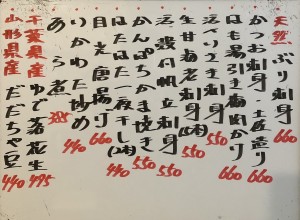 天然 ぶり刺身 660
かつお刺身・土佐造り 660
はも湯引き梅肉かり 660
生げそ刺身 550
生甘海老刺身(2本) 550
活殻付帆立刺身 550
かんぱちかま焼き 550
はたはた一夜干し(2本) 440
目光唐揚げ 660
わかた炒め 440
あら煮 385
千葉県産 ゆで落花生 495
山形県産 だだちゃ豆 440